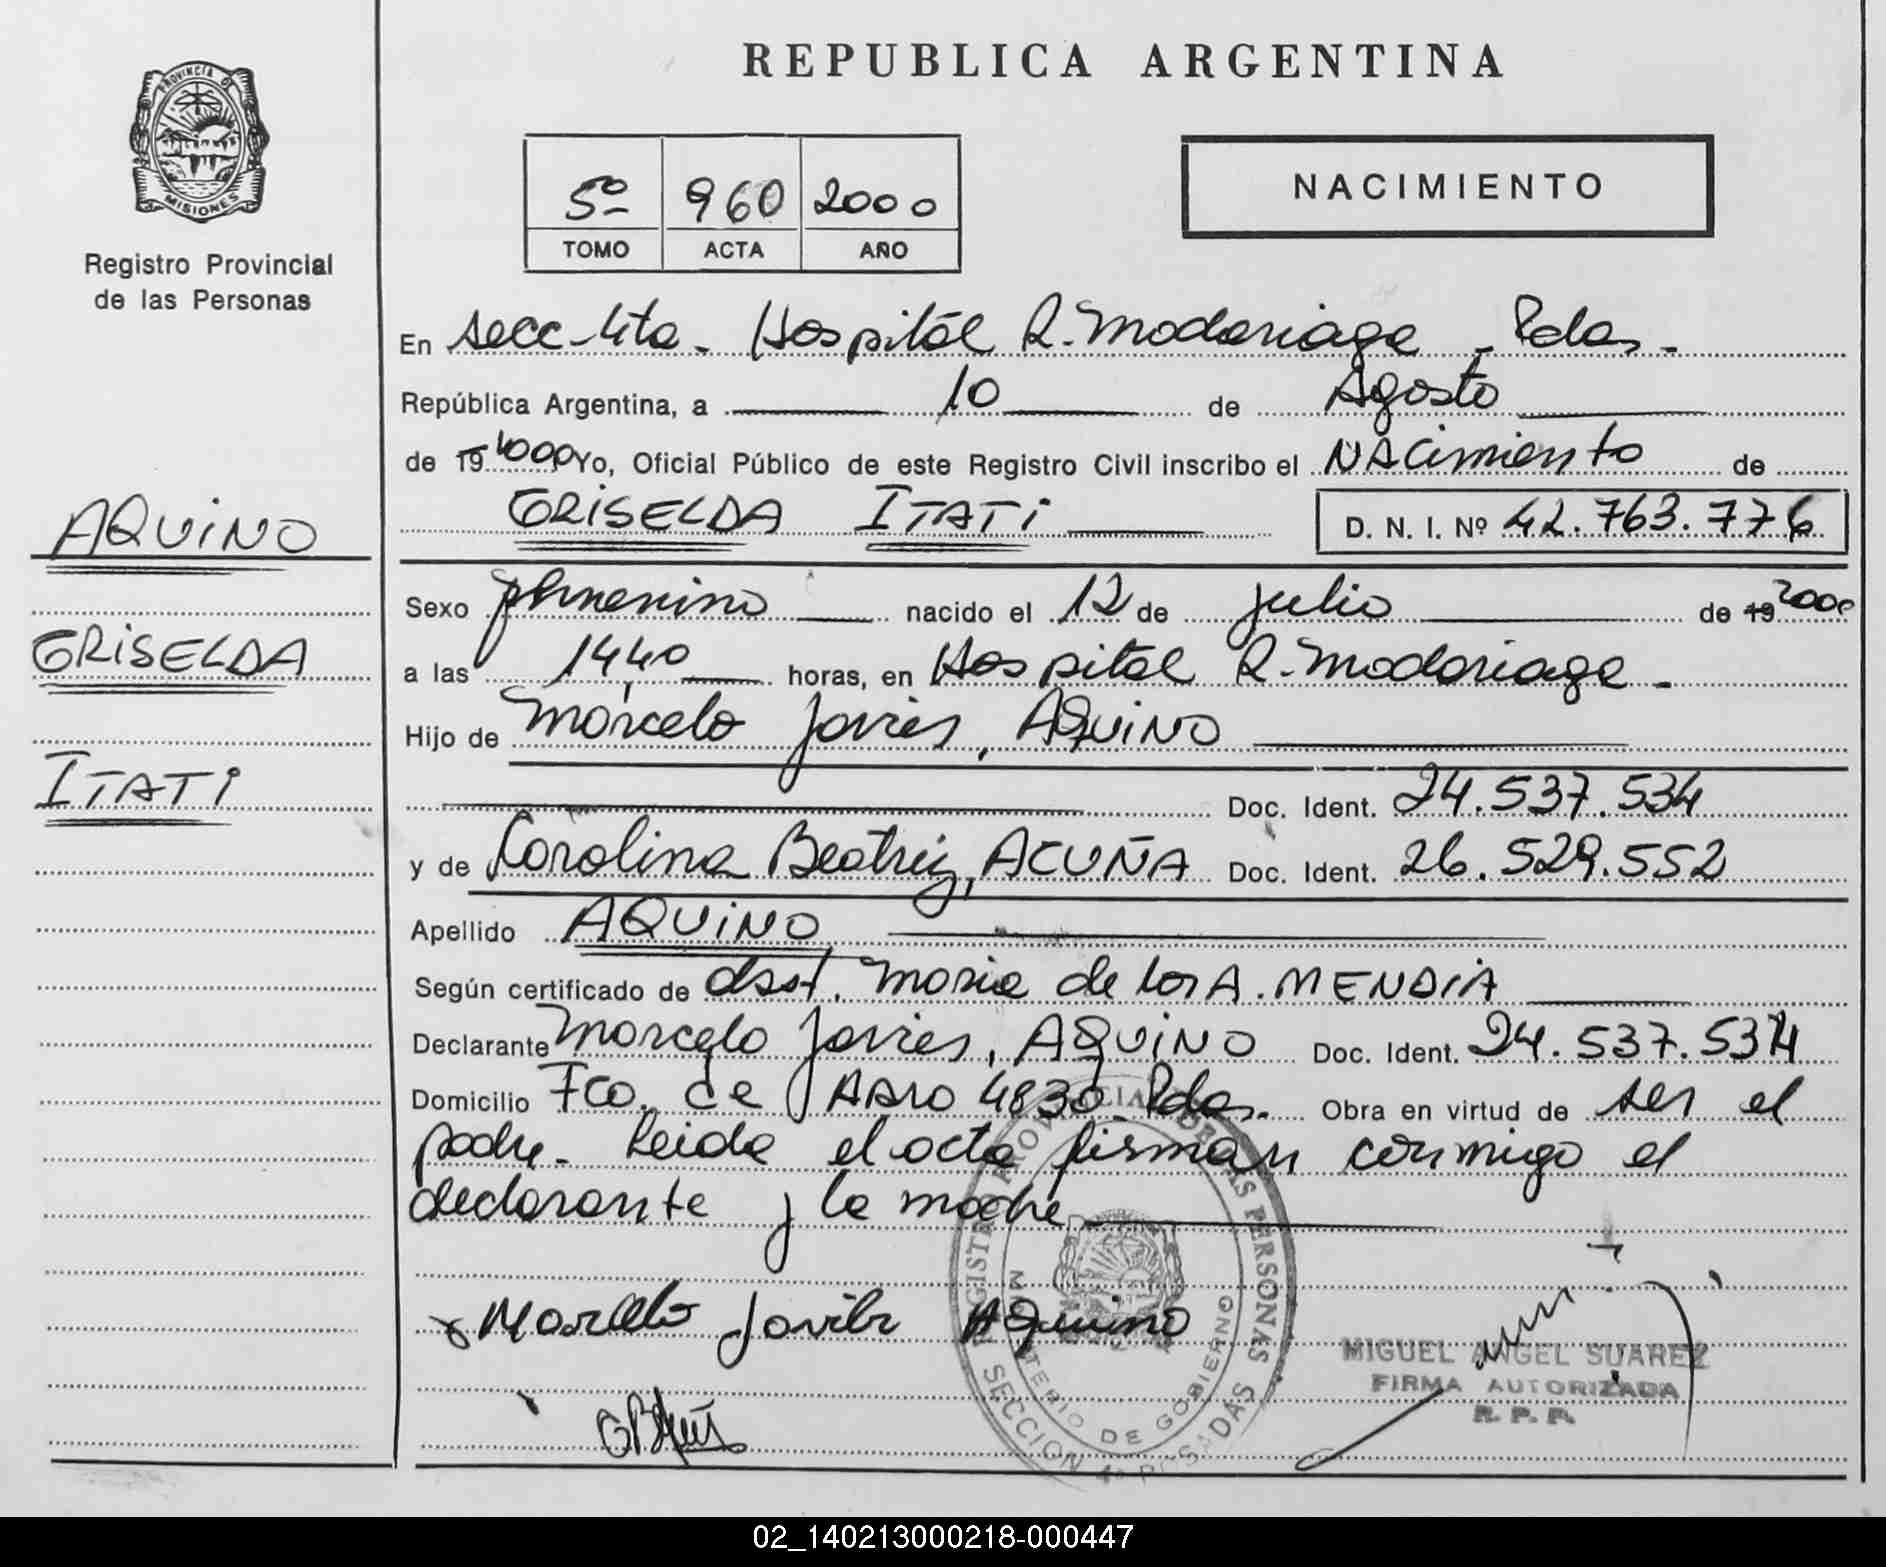 REPUBLICA ARGENTINA
PROVINCIA DE
MISIONES
Registro Provincial
de las Personas
5º 960 2000
TOMO ACTA AÑO
NACIMIENTO
En Secc 4ta. Hospital R. Madariaga - Pdas.
República Argentina, a 10 de Agosto
de 19 2000 Yo, Oficial Público de este Registro Civil inscribo el NACimiento de
GRISELDA ITATI D. N. I. Nº 42.763.776
AQUINO
GRISELDA
ITATI
Sexo femenino nacido el 12 de julio de 19 2000
a las 14,40 horas, en Hospital R. Madariaga -
Hijo de Marcelo Javier, AQUINO
Doc. Ident. 24.537.534
y de Carolina Beatriz, ACUÑA Doc. Ident. 26.529.552
Apellido AQUINO
Según certificado de obst. Maria de los A. MENDIA
Declarante Marcelo Javier, AQUINO Doc. Ident. 24.537.534
Domicilio Fco. de HARO 4830 Pdas. Obra en virtud de ser el
padre. Leida el acta firman conmigo el
declarante y la madre
Marcelo Javier Aquino
REGISTRO PROVINCIAL DE LAS PERSONAS
MINISTERIO DE GOBIERNO
SECCION 4ª POSADAS
MIGUEL ANGEL SUAREZ
FIRMA AUTORIZADA
R. P. P.
02_140213000218-000447